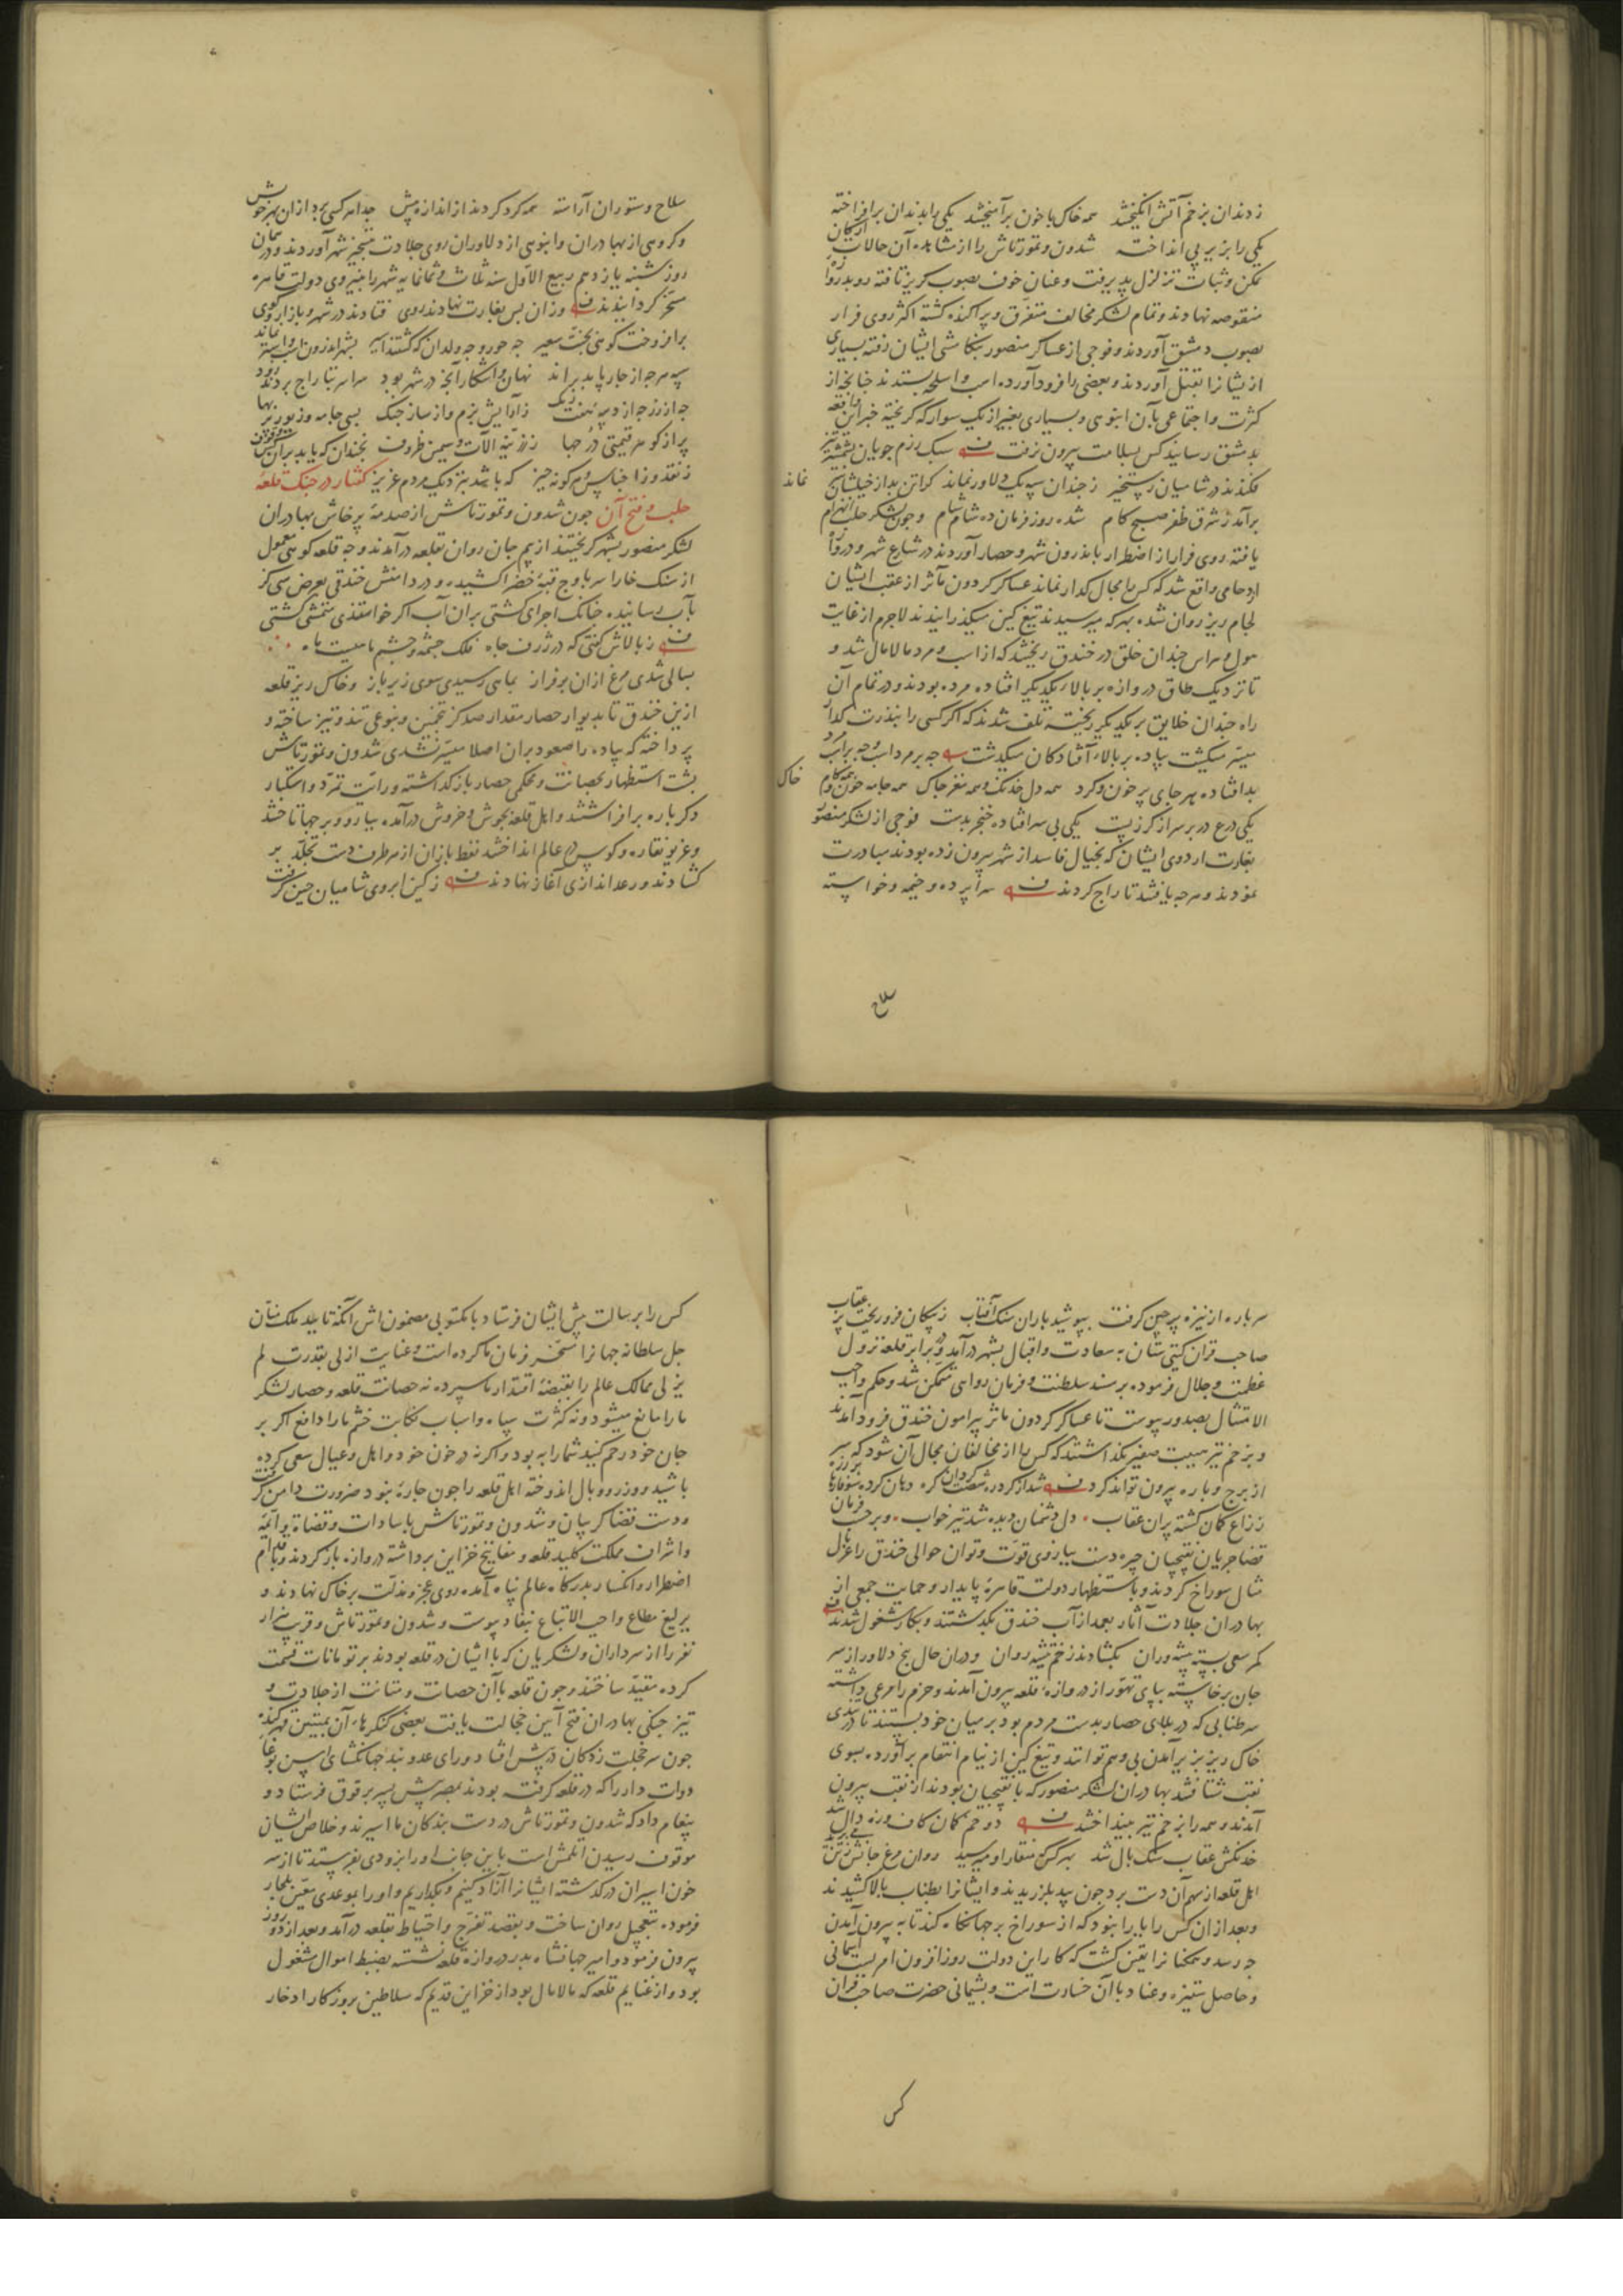 ز دندان بزخم آتش انگیختند همه خاک با خون برآمیختند یکی را بدندان برافراخته
یکی را بزیر پی انداخته شدون و تمورتاش را از مشاهده آن حالات ارکان
تمکن و ثبات تزلزل پذیرفت و عنان خوف بصوب گریز تافته رو بدروازه
منقوصه نهادند و تمام لشکر مخالف متفرق و پراکنده کشته اکثر روی فرار
بصوب دمشق آوردند و فوجی از عساکر منصور بتکامشی ایشان رفته بسیاری
از یشانرا بقتل آوردند و بعضی را فرود آورده اسب و اسلحه بستدند چنانچه از
کثرت و اجتماعی بآن انبوهی و بسیاری بغیر از یک سوار که گریخته خبر این واقعه
بدمشق رسانید کس بسلامت بیرون نرفت سبک رزم جویان بشمشیر تیز
فکندند در شامیان رستخیز ز چندان سپه یک دلاور نماند کزاتن بد از خیلشان نماند
برآمد ز شرق ظفر صبح کام شده روز فرمان ده شام شام و چون لشکر حلب انهزام
یافته روی فرار از اضطرار باندرون شهر و حصار آوردند در شارع شهر و دروازه
ازدحامی واقع شد که کس را مجال گذار نماند عساکر گردون مآثر از عقب ایشان
لجام ریز روان شده بهر که میرسیدند تیغ کین میگذرانیدند لاجرم از غایت
هول و هراس چندان خلق در خندق ریختند که از اسب و مرد مالامال شد و
تا نزدیک طاق دروازه بر بالای یکدیگر افتاده مرده بودند و در تمام آن
راه چندان خلایق بر یکدیگر ریخته تلف شدند که اگر کسی را بندرت گذار
میسر میگشت پیاده بر بالای افتادگان میگذشت چه بر مرد اسب و چه بر اسب مرد
بد افتاده بهر جای پر خون و کرد همه دل خدنک و همه مغز چاک همه جامه خون و همه کام خاک
یکی درع در بر سر از کرز پست یکی بی سر افتاده خنجر بدست فوجی از لشکر منصور
بغارت اردوی ایشان که بخیال فاسد از شهر بیرون زده بودند مبادرت
نمودند و هرچه یافتند تاراج کردند سراپرده و خیمه و خواسته
سلاح
سلاح و ستوران آراسته همه کرد کردند از اندازه بیش جدا هر کسی برد ازان بهر خویش
و گروهی از بهادران و انبوهی از دلاوران روی جلادت بتسخیر شهر آوردند و در همان
روز شنبه یازدهم ربیع الاول سنه ثلاث و ثمانمایه شهر را بنیروی دولت قاهره
مسخر گردانیدند وزان پس بغارت نهادند روی فتادند در شهر و بازار و کوی
برافروخت کوهی بخت سعیر چه حور و چه ولدان که گشتند اسیر بشهر اندرون اسب و استر نماند
سپه هرچه از چارپا بد براند نهان و آشکار آنچه در شهر بود سراسر بتاراج بردند زود
چه از زر چه از دیبه هفت رنک ز آرایش بزم و از ساز جنک بسی جامه و زیور پر بها
پر از گوهر قیمتی درجها ز زرینه آلات و سیمین ظروف بچندان که باید بران کس وقوف
ز نقد و ز اجناس و هر کونه چیز که باشد بنزدیک مردم عزیز گفتار در جنک قلعه
حلب و فتح آن چون شدون و تمورتاش از صدمه پرخاش بهادران
لشکر منصور بشهر گریختند از بیم جان روان بقلعه درآمدند و چه قلعه کوهی معمول
از سنک خارا سر باوج قبه خضرا کشیده و در دامنش خندقی بعرض سی گز
بآب رسانیده چنانک اجرای کشتی بران آب اگر خواستندی متمشی کشتی
ز بالاش گفتی که در ژرف چاه فلک چشمه و چشم ماهیست ماه
بسالی شدی مرغ ازان بر فراز بماهی رسیدی سوی زیر باز و خاک ریز قلعه
ازین خندق تا بدیوار حصار مقدار صد گز تخمین و بنوعی تند و تیز ساخته و
پرداخته که پیاده را صعود بران اصلا میسر نشدی شدون و تمورتاش
پشت استظهار بحصانت و محکمی حصار باز گذاشته و رایت تمرد و استکبار
دگر باره برافراشتند و اهل قلعه بجوش و خروش درآمده ببارو و برجها تاختند
و غریو نقاره و کوس در عالم انداختند نفط بازان از هر طرف دست تجلد بر
کشادند و رعد اندازی آغاز نهادند ز کین ابروی شامیان چین گرفت
سر باره از نیزه پرچین گرفت بپوشید باران سنک آفتاب ز پیکان فرو ریخت پر عقاب
صاحب قران گیتی ستان به سعادت و اقبال بشهر درآمد و در برابر قلعه نزول
عظمت و جلال فرموده بر مسند سلطنت و فرمان روایی متمکن شد و حکم واجب
الامتثال بصدور پیوست تا عساکر گردون مآثر پیرامون خندق فرود آمدند
و بزخم تیر هیبت صفیر نگذاشتند که کس را از مخالفان مجال آن شود که سر
از برج و باره بیرون تواند کرد شد از کرد ره شصت گردان گره دهان کرده سوفارها بر زره
ز زاغ کمان کشته پران عقاب دل دشمنان دیده شد تیر خواب و بر حسب فرمان
قضا جریان نقبچیان چیره دست ببازوی قوت و توان حوالی خندق را غربال
مثال سوراخ کردند و باستظهار دولت قاهره پایدار و حمایت جمعی از
بهادران جلادت آثار بعمد از آب خندق بگذشتند و بکار مشغول شدند
کمر سعی بسته پیشه وران بگشادند زخم تیشه روان و دران حال پنج دلاور از سر
جان برخاسته بپای تهور از دروازه قلعه بیرون آمدند و حزم را مرعی داشته
سر طنابی که در بالای حصار بدست مردم بود بر میان خود بستند تا در تندی
خاک ریز بر برآمدن بی وهم توانند و تیغ کین از نیام انتقام برآورده بسوی
نقب شتافتند بهادران لشکر منصور که با نقبچیان بودند از نقب بیرون
آمدند و همه را بزخم تیر بینداختند دو خم کمان کاف وزه دال شد
خدنکش عقاب سبک بال شد بهر کس که منقار او میرسید روان مرغ جانش ز تن می پرید
اهل قلعه از سهم آن دست برد چون بید بلرزیدند و ایشانرا بطناب بالا کشیدند
و بعد ازان کس را یارا نبود که از سوراخ برجها نگاه کند تا به بیرون آمدن
چه رسد و همکنانرا یقین گشت که کار این دولت روز افزون امریست آسمانی
و حاصل ستیزه و عناد با آن خسارتست و پشیمانی حضرت صاحب قران
کس
کس را برسالت پیش ایشان فرستاد با مکتوبی مضمون اش آنکه تایید ملک منان
جل سلطانه جهانرا مسخر فرمان ما کرده است و عنایت ازلی بقدرت لم
یزلی ممالک عالم را بقبضه اقتدار ما سپرده نه حصانت قلعه و حصار لشکر
ما را مانع میشود و نه کثرت سپاه و اسباب نکایت خشم ما را دافع اگر بر
جان خود رحم کنید شما را به بود و اگر نه در خون خود و اهل و عیال سعی کرده
باشید و وزر و وبال اندوخته اهل قلعه را چون چاره نبود ضرورت دامن گرفت
و دست قضا گریبان و شدون و تمورتاش با سادات و قضاة و ایمه
و اشراف مملکت کلید قلعه و مفاتیح خزاین برداشته دروازه باز کردند و باقدام
اضطرار و انکسار بدرگاه عالم پناه آمده روی عجز و مذلت بر خاک نهادند و
یرلیغ مطاع واجب الاتباع بنفاد پیوست و شدون و تمورتاش و قریب هزار
نفر را از سرداران و لشکریان که با ایشان در قلعه بودند بر تومانات قسمت
کرده مقید ساختند و چون قلعه با آن حصانت و متانت از جلادت و
تیز جنگی بهادران فتح آیین خجالت یافت بعضی کنگرهاء آن بمتین قهر کنده
چون سر خجلت زدگان در پیش افتاد و رای عدو بند جهانگشای اسن بوغا
دوات دار را که در قلعه گرفته بودند بمصر پیش پسر برقوق فرستاد و
پیغام داد که شدون و تمورتاش در دست بندگان ما اسیرند و خلاص ایشان
موقوف رسیدن اتلمش است باین جانب او را بزودی بفرستند تا از سر
خون اسیران درگذشته ایشانرا آزاد کنیم و بگذاریم و او را بموعدی معین بلجار
فرموده بتعجیل روان ساخت و بقصد تفرج و احتیاط بقلعه درآمد و بعد از دو روز
بیرون فرمود و امیر جهانشاه بدر دروازه قلعه نشسته بضبط اموال مشغول
بود و از غنایم قلعه که مالامال بود از خزاین قدیم که سلاطین بروزگار ادخار